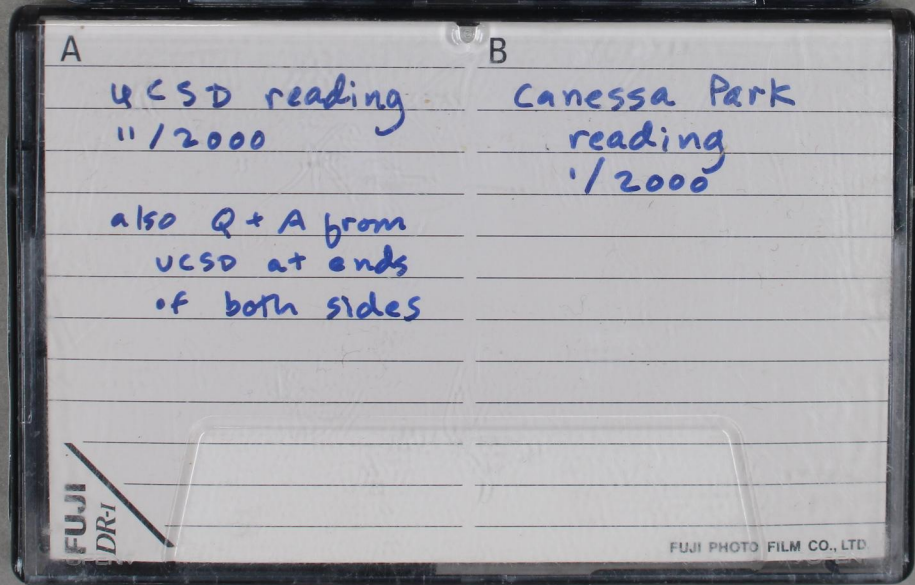 A
UCSD reading
11/2000
also Q + A from
UCSD at ends
of both sides
B
Canessa Park
reading
1/2000
FUJI
DR-I
FUJI PHOTO FILM CO., LTD.